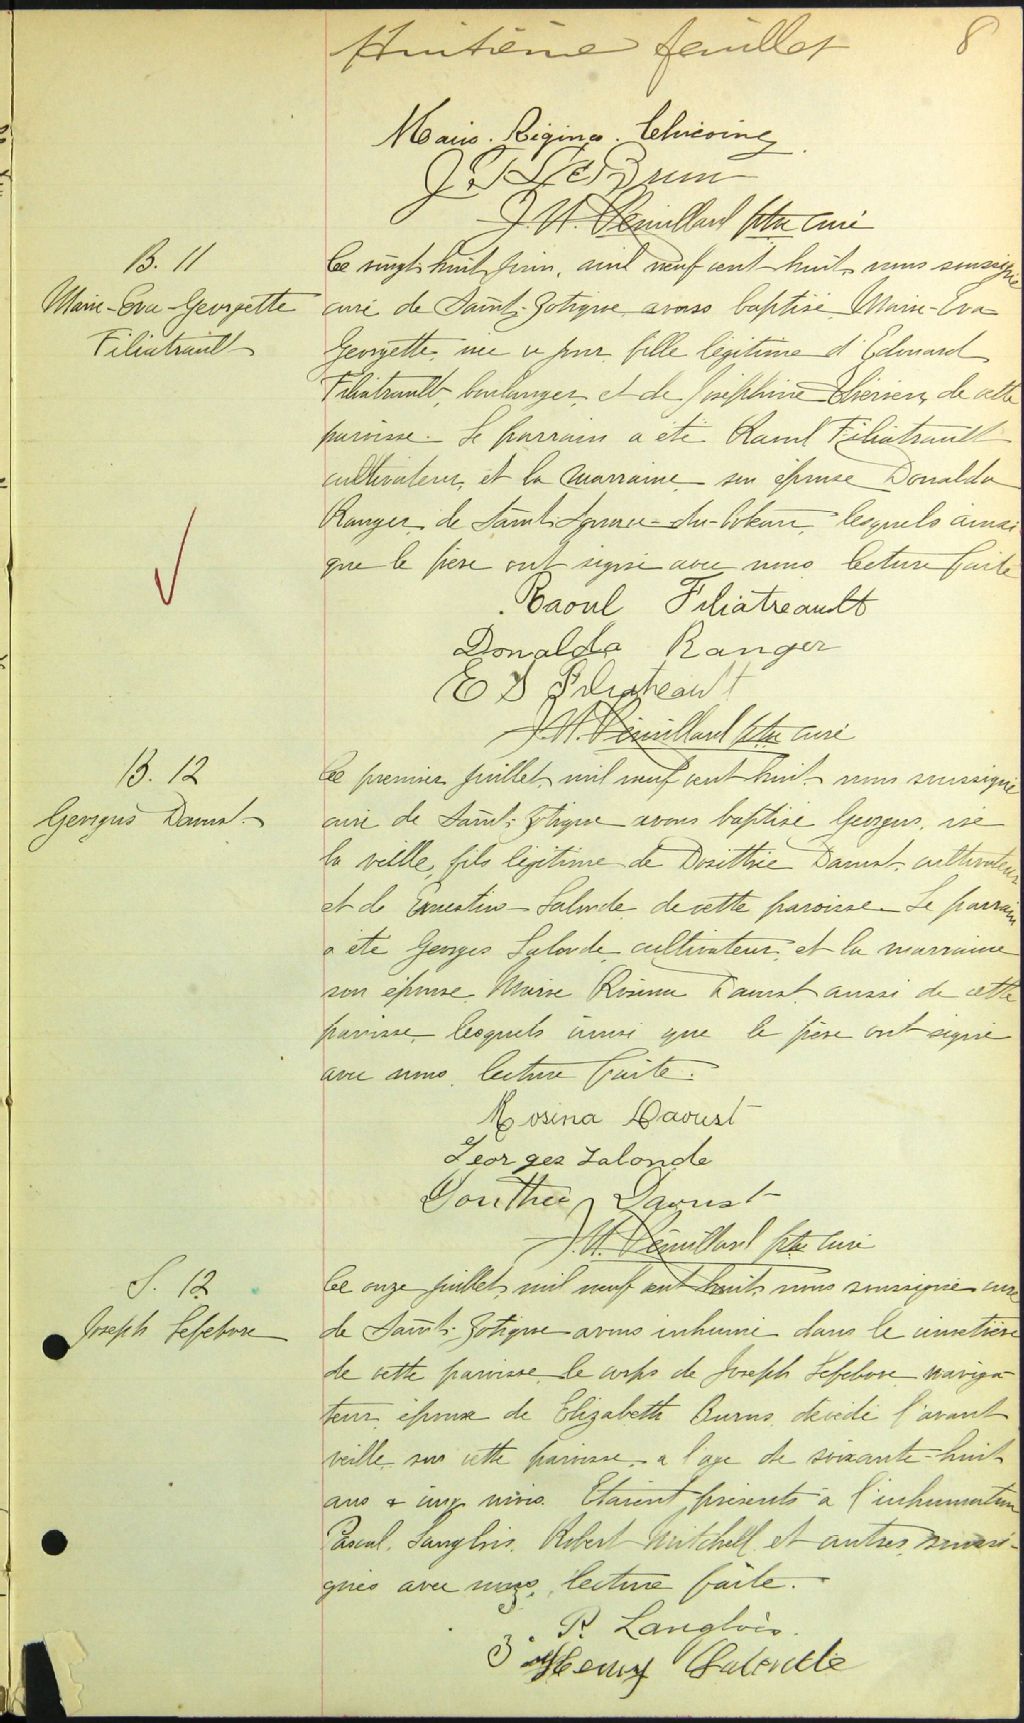 Huitième feuillet 8
Marie Régina
J. LeBrun
J.A. ptre curé
B. 11
Marie-Eva-Georgette
Filiatrault
Ce vingt huit juin, mil neuf cent huit nous soussigné
curé de Saint-Zotique avons baptisé Marie-Eva
Georgette, née ce jour, fille légitime d'Edouard
Filiatrault, boulanger, et de Joséphine de cette
paroisse. Le parrain a été Raoul Filiatrault
cultivateur, et la marraine, son épouse Donalda
Ranger, de lesquels ainsi
que le père ont signé avec nous. Lecture faite
Raoul Filiatreault
Donalda Ranger
E D Filiatreault
J.A. ptre curé
B. 12
Georges Daoust
Ce premier juillet, mil neuf cent huit nous soussigné
curé de Saint-Zotique avons baptisé Georges, né
la veille, fils légitime de Dosithée Daoust, cultivateur
et de Ernestine Lalonde de cette paroisse. Le parrain
a été Georges Lalonde, cultivateur, et la marraine
son épouse, Marie Rosina Daoust aussi de cette
paroisse, lesquels ainsi que le père ont signé
avec nous. lecture faite.
Rosina Daoust
Georges Lalonde
Dosithée Daoust
J.A. ptre curé
S. 12
Joseph Lefebvre
Ce onze juillet, mil neuf cent huit, nous soussigné curé
de Saint-Zotique avons inhumé dans le cimetière
de cette paroisse le corps de Joseph Lefebvre, naviga-
teur, époux de Elizabeth Burns, décédé l'avant
veille, sur cette paroisse, à l'age de soixante-huit
ans & cinq mois. Etaient présents à l'inhumation
Pascal Langlois, Robert Mitchell, et autres, soussi-
gnés avec nous, lecture faite.
P. Langlois.
Henry Lalonde